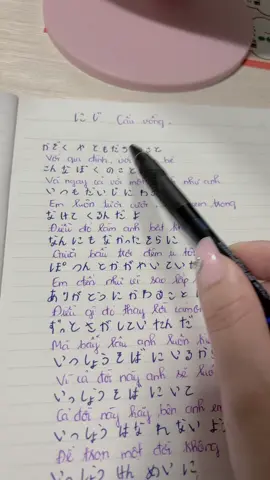 にじ Cầu vồng.
かぞく や ともだちのこと
Với gia đình, với bè
こんなぼくのこと
Và ngay cả với một như anh
いつもだいじに
Em luôn trong
なけて くるんだ よ
Điều đó làm anh
なんにもなかったそらに
Giữa bầu trời
ぽつんとかがやいてい
Em đến như vì sao lấp
ありがとうにかわること
Điều gì đó thay lời cảm ơn
ずっとさがしていたんだ
Mà bấy lâu anh luôn
いっしょうそばにいるか
Vì cả đời này anh sẽ luôn
いっしょうそばにいて
Cả đời này hãy bên anh em
いっしょうはなれないよう
Để trọn một đời không
いっしょうけんめいに